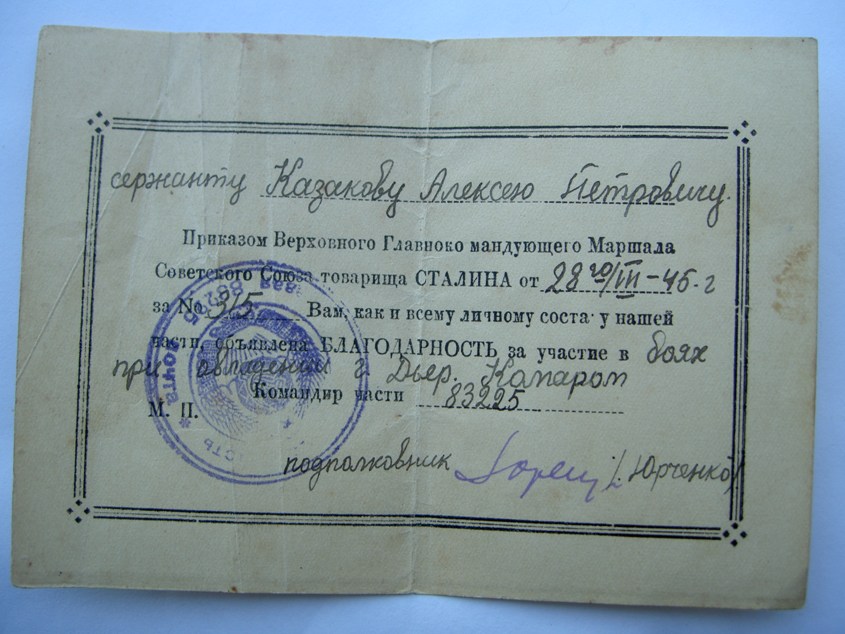 сержанту Казакову Алексею Петровичу.
Приказом Верховного Главноко мандующего Маршала
Советского Союза товарища СТАЛИНА от 28го/III-45-г
за № 315 Вам, как и всему личному соста у нашей
части, объявлена БЛАГОДАРНОСТЬ за участие в боях
при овладении г. Дьер. Комаром
Командир части 83225
М. П.
подполковник /Юрченко/
почта